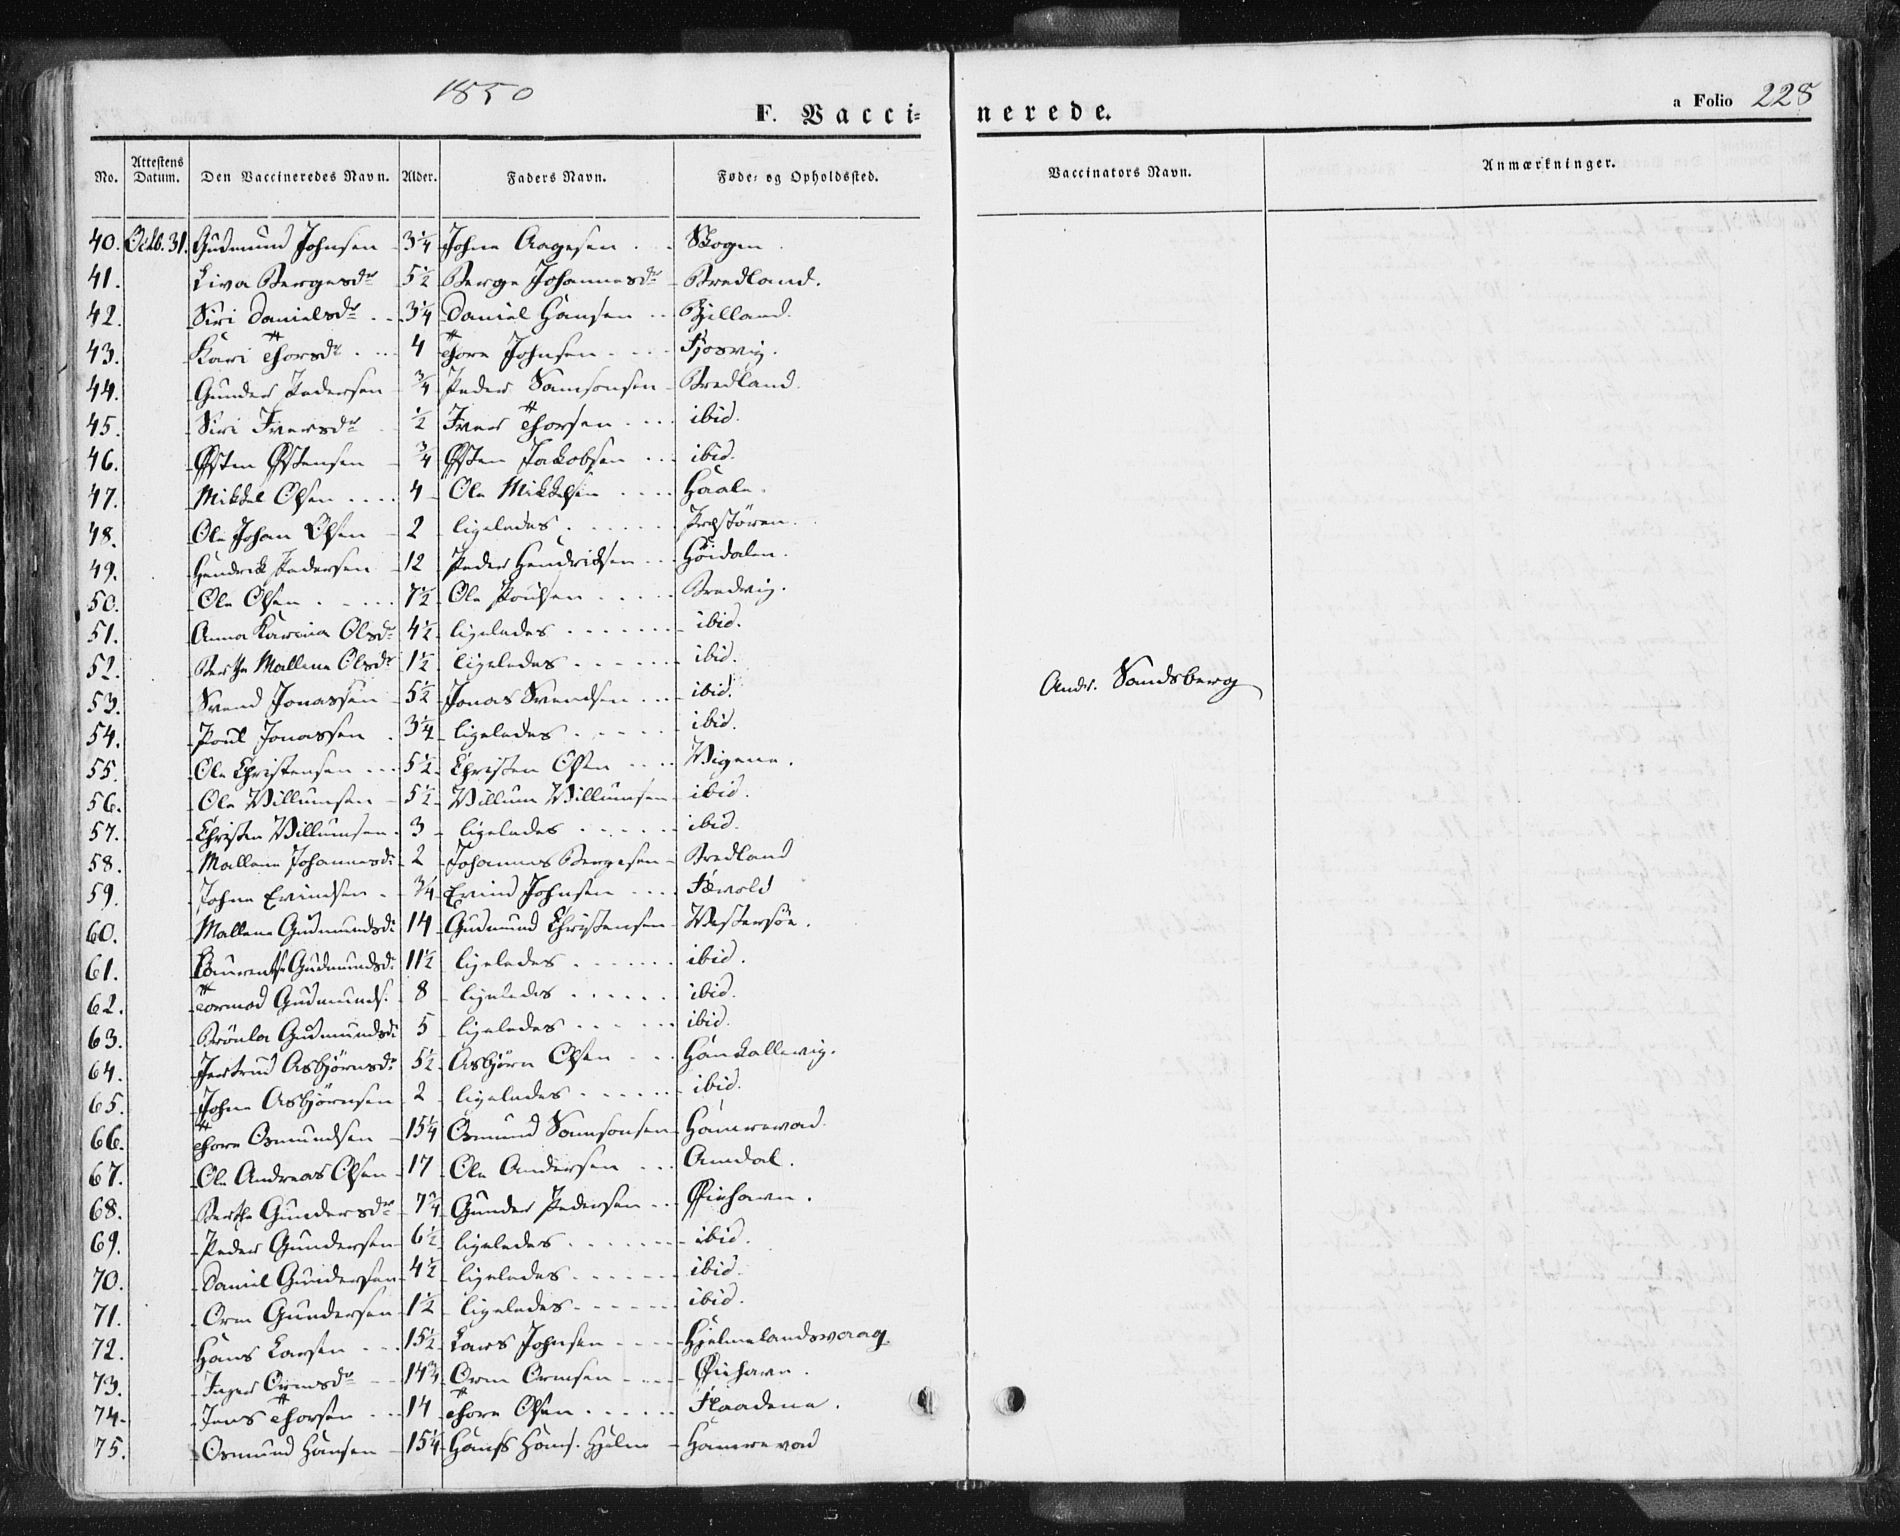 1850
F. Vacci-
nerede.
a Folio 228
No. Attestens Datum. Den Vaccineredes Navn. Alder. Faders Navn. Føde- og Opholdssted. Vaccinators Navn. Anmærkninger.
40. Octb. 31. Gudmund Johnsen 3 1/4 Johne Aagesen Skogen
41. Liva Bergesdr 5 1/2 Berge Johannesdr Bredland.
42. Siri Danielsdr 3 1/4 Daniel Hansen Bjelland.
43. Kari Thorsdr 4 Thore Johnsen Fjosvig.
44. Gunder Pedersen 3/4 Peder Samsonsen Bredland.
45. Siri Iversdr 1/2 Iver Thorsen ibid.
46. Østen Østensen 3/4 Østen Jakobsen ibid.
47. Mikkel Olsen 4 Ole Mikkelsen Haale.
48. Ole Johan Olsen 2 ligeledes
49. Hendrick Pedersen 12 Peder Hendricksen Höidalen.
50. Ole Olsen 7 1/2 Ole Poulsen Bredvig.
51. Anna Karina Olsdr 4 1/2 ligeledes ibid.
52. Berthe Mallene Olsdr 1 1/2 ligeledes ibid.
53. Svend Jonassen 5 1/2 Jonas Svendsen ibid.
54. Poul Jonassen 3 1/4 ligeledes ibid.
55. Ole Christensen 5 1/2 Christen Olsen Vigene.
56. Ole Villumsen 5 1/2 Villum Villumsen ibid.
57. Christen Villumsen 3 ligeledes ibid.
58. Mallene Johannesd: 2 Johannes Bergesen Bredland
59. Johne Evindsen 3/4 Evind Johnsen Fævold
60. Mallene Gudmundsd: 14 Gudmund Christensen Vestersöe.
61. Laurentse Gudmundsd: 11 1/2 ligeledes ibid.
62. Tormod Gudmunds. 8 ligeledes ibid.
63. Brönla Gudmundsd: 5 ligeledes ibid.
64. Jertrud Asbjörnsdr 5 1/2 Asbjörn Olsen Hankallevig.
65. Johne Asbjörnsen 2 ligeledes ibid.
66. Thore Osmundsen 15 1/4 Osmund Samsonsen Hamrevad.
67. Ole Andreas Olsen 17 Ole Andersen Amdal.
68. Berthe Gundersdr 7 3/4 Gunder Pedersen Øiehavn.
69. Peder Gundersen 6 1/2 ligeledes ibid.
70. Daniel Gundersen 4 1/2 ligeledes ibid.
71. Orm Gundersen 1 1/2 ligeledes ibid.
72. Hans Larsen 15 1/2 Lars Johnsen Hjelmelandsvaag
73. Inger Ormsdr 14 3/4 Orm Ormsen Øiehavn.
74. Jens Thorsen 14 Thore Olsen Flaadene.
75. Osmund Hansen 15 1/4 Hans Hans. Hjelm Hamrevad
Andr. Sandsberg